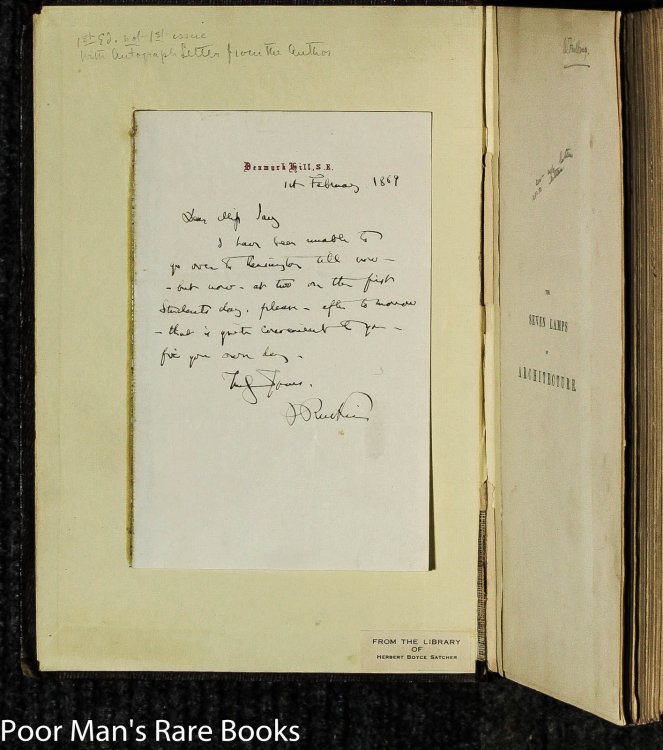 1st Ed. not 1st issue
with Autograph Letter from the Author
Denmark Hill, S.E.
1st February 1869
Dear Miss
I have been unable to
go over to Kensington till now –
– but now – at two on the first
Students day, please – after to morrow
– that is quite convenient to you –
fix your own day –
Yours.
J Ruskin
FROM THE LIBRARY
OF
HERBERT BOYCE SATCHER
THE
SEVEN LAMPS
OF
ARCHITECTURE
Poor Man's Rare Books